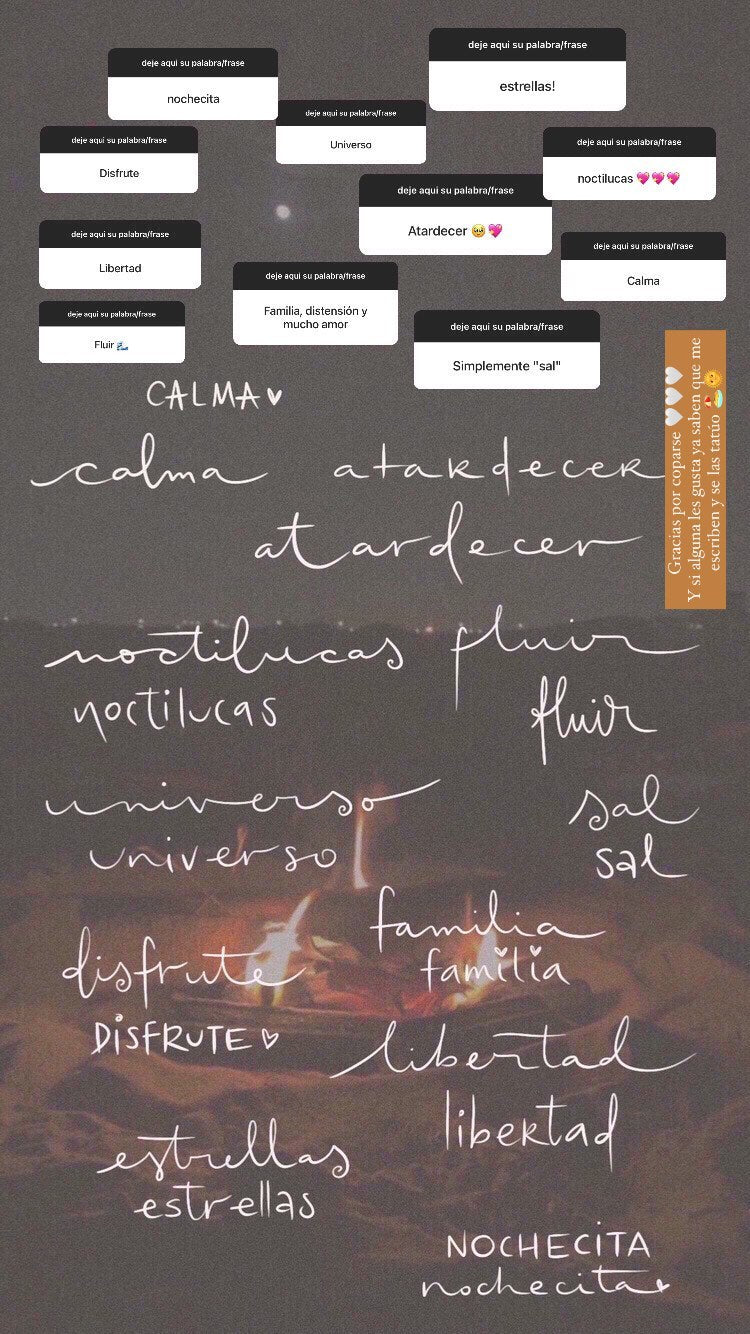 deje aqui su palabra/frase
estrellas!
deje aqui su palabra/frase
nochecita
deje aqui su palabra/frase
Universo
deje aqui su palabra/frase
Disfrute
deje aqui su palabra/frase
noctilucas 💖💖💖
deje aqui su palabra/frase
Atardecer 🥹💖
deje aqui su palabra/frase
Libertad
deje aqui su palabra/frase
Calma
deje aqui su palabra/frase
Familia, distensión y
mucho amor
deje aqui su palabra/frase
Fluir 🌊
deje aqui su palabra/frase
Simplemente "sal"
Gracias por coparse 🤍🤍🤍
Y si alguna les gusta ya saben que me
escriben y se las tatúo 🏖️🌞
CALMA ♥
calma
atardecer
atardecer
noctilucas
fluir
noctilucas
fluir
universo
sal
universo
sal
familia
disfrute
familia
DISFRUTE ♡
libertad
libertad
estrellas
estrellas
NOCHECITA
nochecita